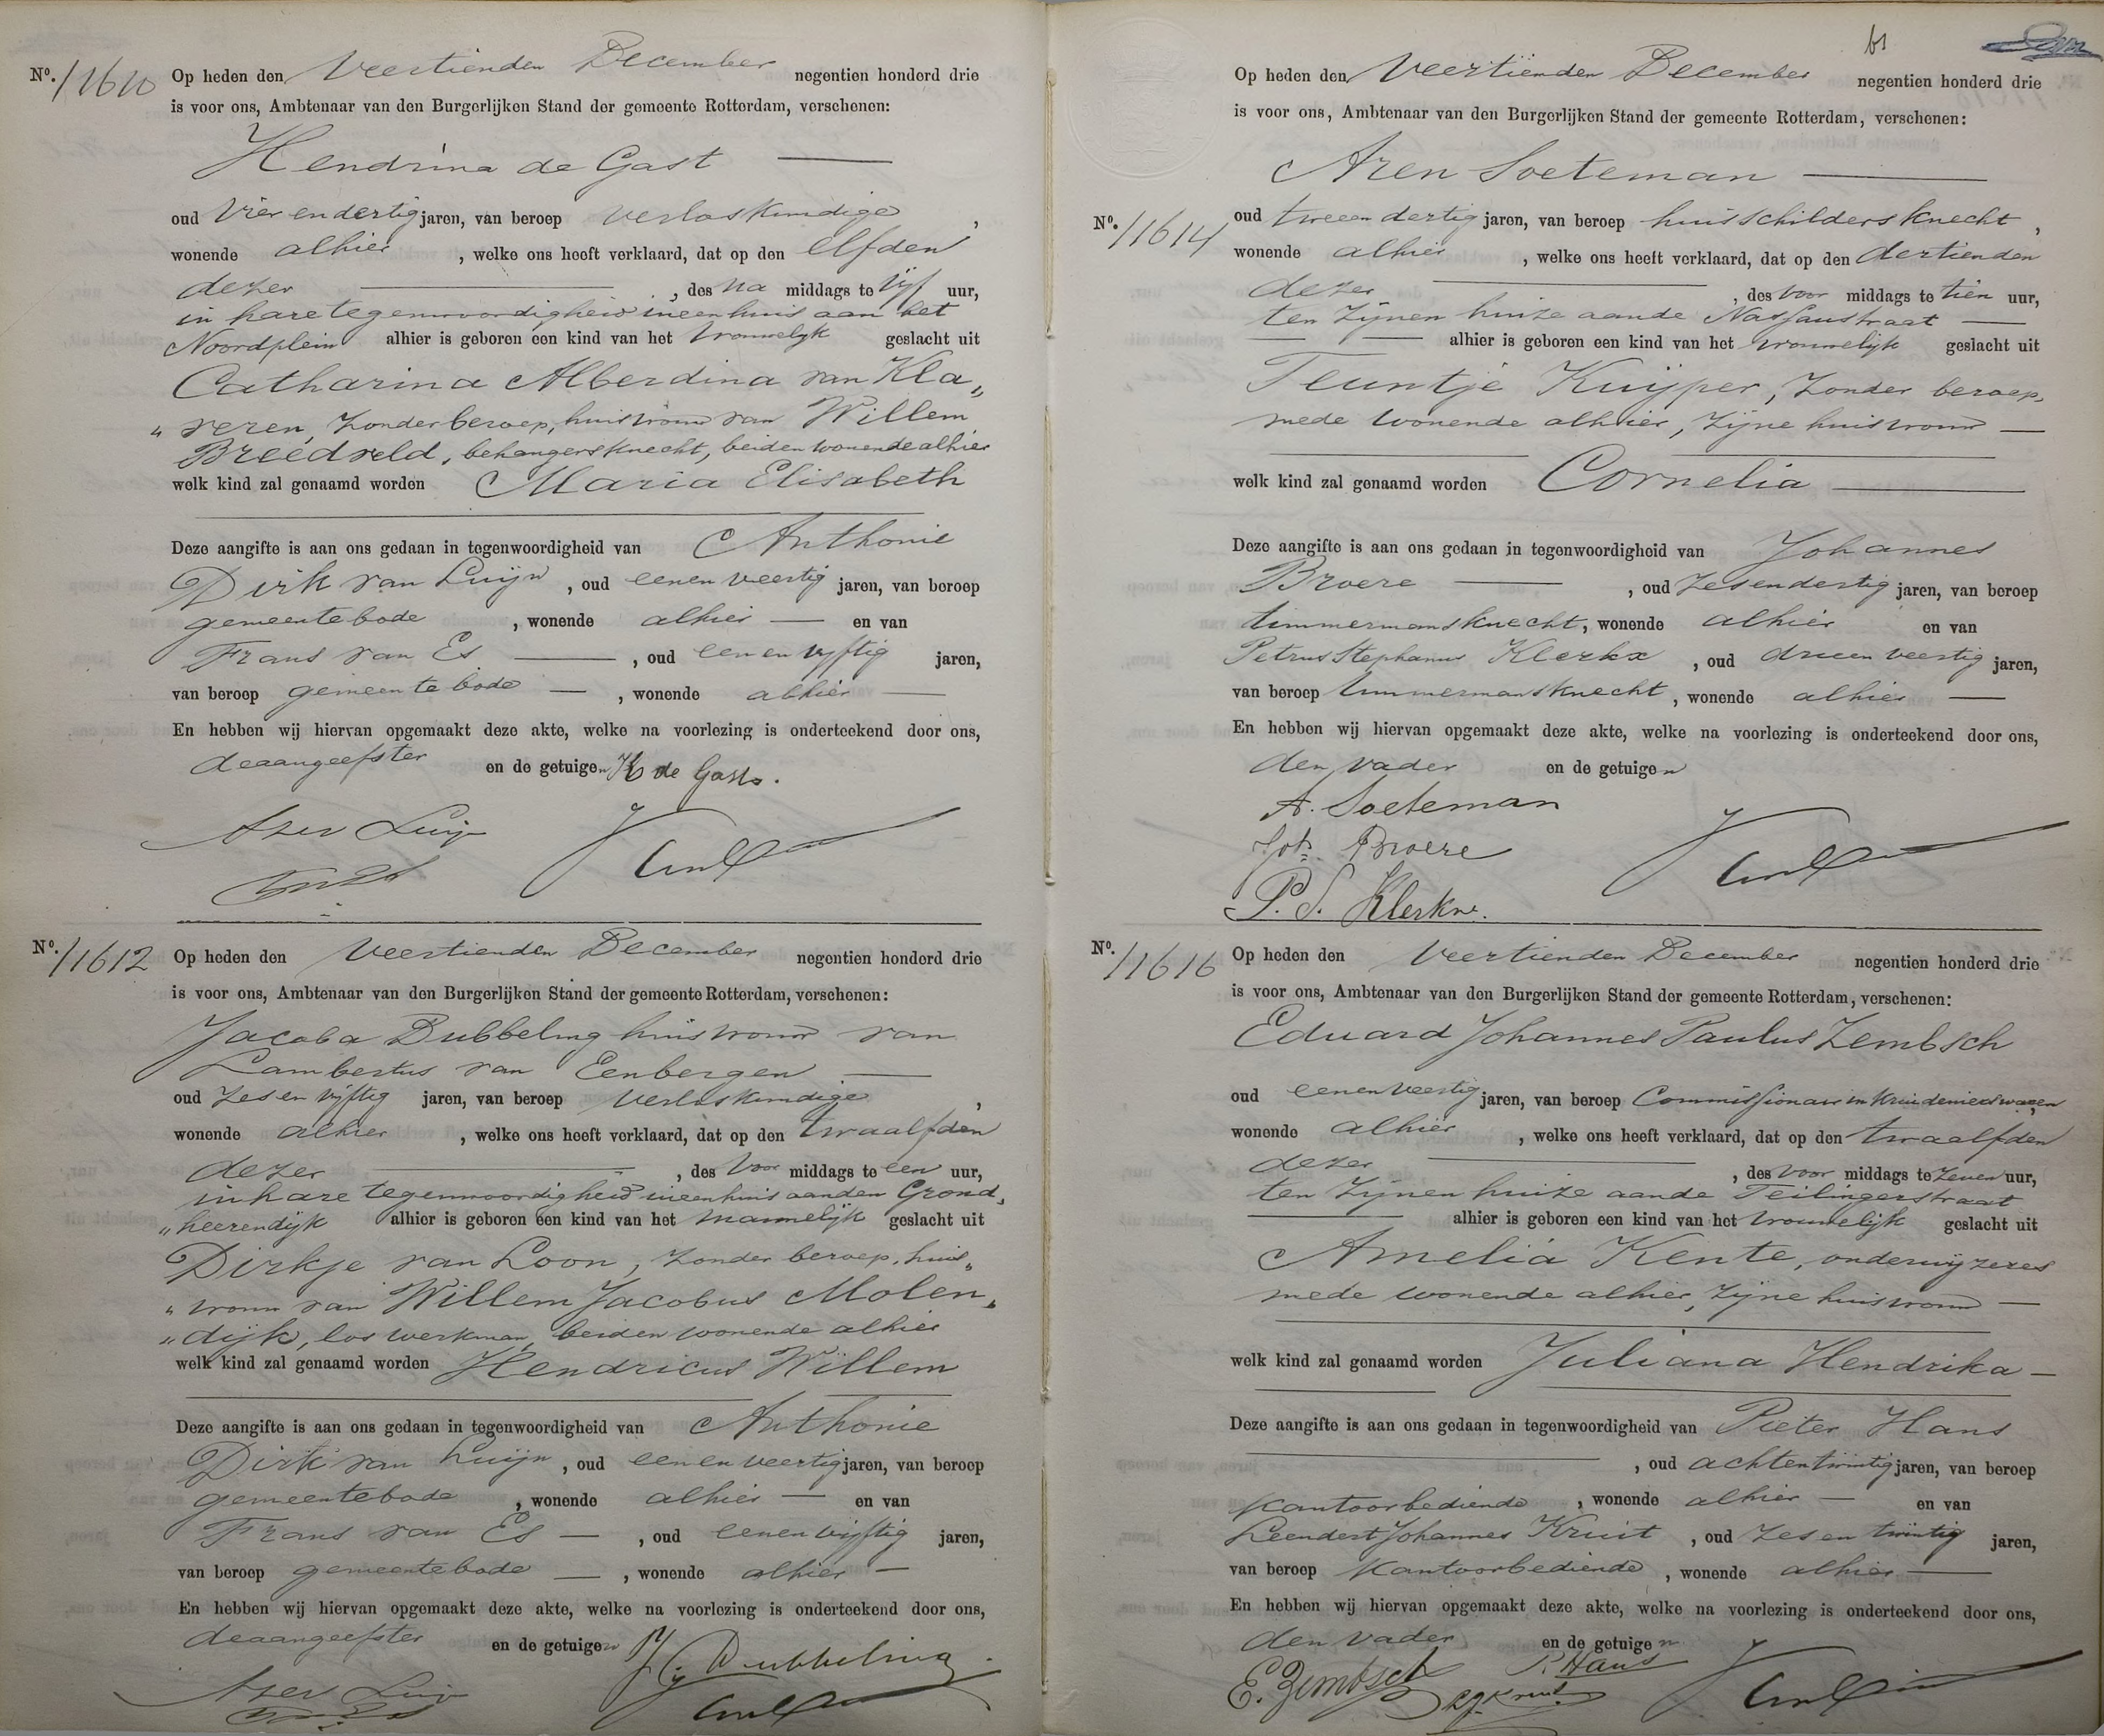 No. 11610 Op heden den Veertienden December negentien honderd drie
is voor ons, Ambtenaar van den Burgerlijken Stand der gemeente Rotterdam, verschenen:
Hendrina de Gast
oud Vier en dertig jaren, van beroep verloskundige,
wonende alhier, welke ons heeft verklaard, dat op den elfden
dezer, des na middags te vijf uur,
in hare tegenwoordigheid in een huis aan het
Noordplein alhier is geboren een kind van het vrouwelijk geslacht uit
Catharina Alberdina van Kla„
„veren, zonder beroep, huisvrouw van Willem
Breedveld, behangersknecht, beiden wonende alhier
welk kind zal genaamd worden Maria Elisabeth
Deze aangifte is aan ons gedaan in tegenwoordigheid van Anthonie
Dirk van Luijn, oud eenen veertig jaren, van beroep
gemeentebode, wonende alhier en van
Frans van Es, oud eenen vijftig jaren,
van beroep gemeentebode, wonende alhier
En hebben wij hiervan opgemaakt deze akte, welke na voorlezing is onderteekend door ons,
de aangeefster en de getuigen H de Gast.
No. 11612 Op heden den Veertienden December negentien honderd drie
is voor ons, Ambtenaar van den Burgerlijken Stand der gemeente Rotterdam, verschenen:
Jacoba Bubbeling huisvrouw van
Lambertus van Eenbergen
oud zes en vijftig jaren, van beroep Verloskundige,
wonende alhier, welke ons heeft verklaard, dat op den twaalfden
dezer, des voor middags te een uur,
in hare tegenwoordigheid in een huis aan den Grond„
„heerendijk alhier is geboren een kind van het mannelijk geslacht uit
Dirkje van Loon, zonder beroep, huis„
„vrouw van Willem Jacobus Molen„
„dijk, los werkman, beiden wonende alhier
welk kind zal genaamd worden Hendricus Willem
Deze aangifte is aan ons gedaan in tegenwoordigheid van Anthonie
Dirk van Luijn, oud eenen veertig jaren, van beroep
gemeentebode, wonende alhier en van
Frans van Es, oud eenen vijftig jaren,
van beroep gemeentebode, wonende alhier
En hebben wij hiervan opgemaakt deze akte, welke na voorlezing is onderteekend door ons,
de aangeefster en de getuigen Bubbeling
61
Op heden den Veertienden December negentien honderd drie
is voor ons, Ambtenaar van den Burgerlijken Stand der gemeente Rotterdam, verschenen:
Aren Soeteman
No. 11614 oud tweeen dertig jaren, van beroep huisschildersknecht,
wonende alhier, welke ons heeft verklaard, dat op den dertienden
dezer, des voor middags te tien uur,
ten zijnen huize aan de Nassaustraat
alhier is geboren een kind van het vrouwelijk geslacht uit
Teuntje Kuijper, zonder beroep,
mede wonende alhier, zijne huisvrouw
welk kind zal genaamd worden Cornelia
Deze aangifte is aan ons gedaan in tegenwoordigheid van Johannes
Broere, oud zesendertig jaren, van beroep
timmermansknecht, wonende alhier en van
Petrus Stephanus Klerkx, oud drieen veertig jaren,
van beroep timmermansknecht, wonende alhier
En hebben wij hiervan opgemaakt deze akte, welke na voorlezing is onderteekend door ons,
den vader en de getuigen
A. Soeteman
Joh. Broere
P. S. Klerkx.
No. 11616 Op heden den Veertienden December negentien honderd drie
is voor ons, Ambtenaar van den Burgerlijken Stand der gemeente Rotterdam, verschenen:
Eduard Johannes Paulus Zembsch
oud eenen veertig jaren, van beroep Commissionair in Kruidenierswaren
wonende alhier, welke ons heeft verklaard, dat op den twaalfden
dezer, des voor middags te zeven uur,
ten zijnen huize aan de Teilingerstraat
alhier is geboren een kind van het vrouwelijk geslacht uit
Amelia Kente, onderwijzeres
mede wonende alhier, zijne huisvrouw
welk kind zal genaamd worden Juliana Hendrika
Deze aangifte is aan ons gedaan in tegenwoordigheid van Pieter Hans
, oud achtentwintig jaren, van beroep
Kantoorbediende, wonende alhier en van
Leendert Johannes Kruit, oud zesen twintig jaren,
van beroep Kantoorbediende, wonende alhier
En hebben wij hiervan opgemaakt deze akte, welke na voorlezing is onderteekend door ons,
den vader en de getuigen
E. Zembsch P. Hans
L.J. Kruit